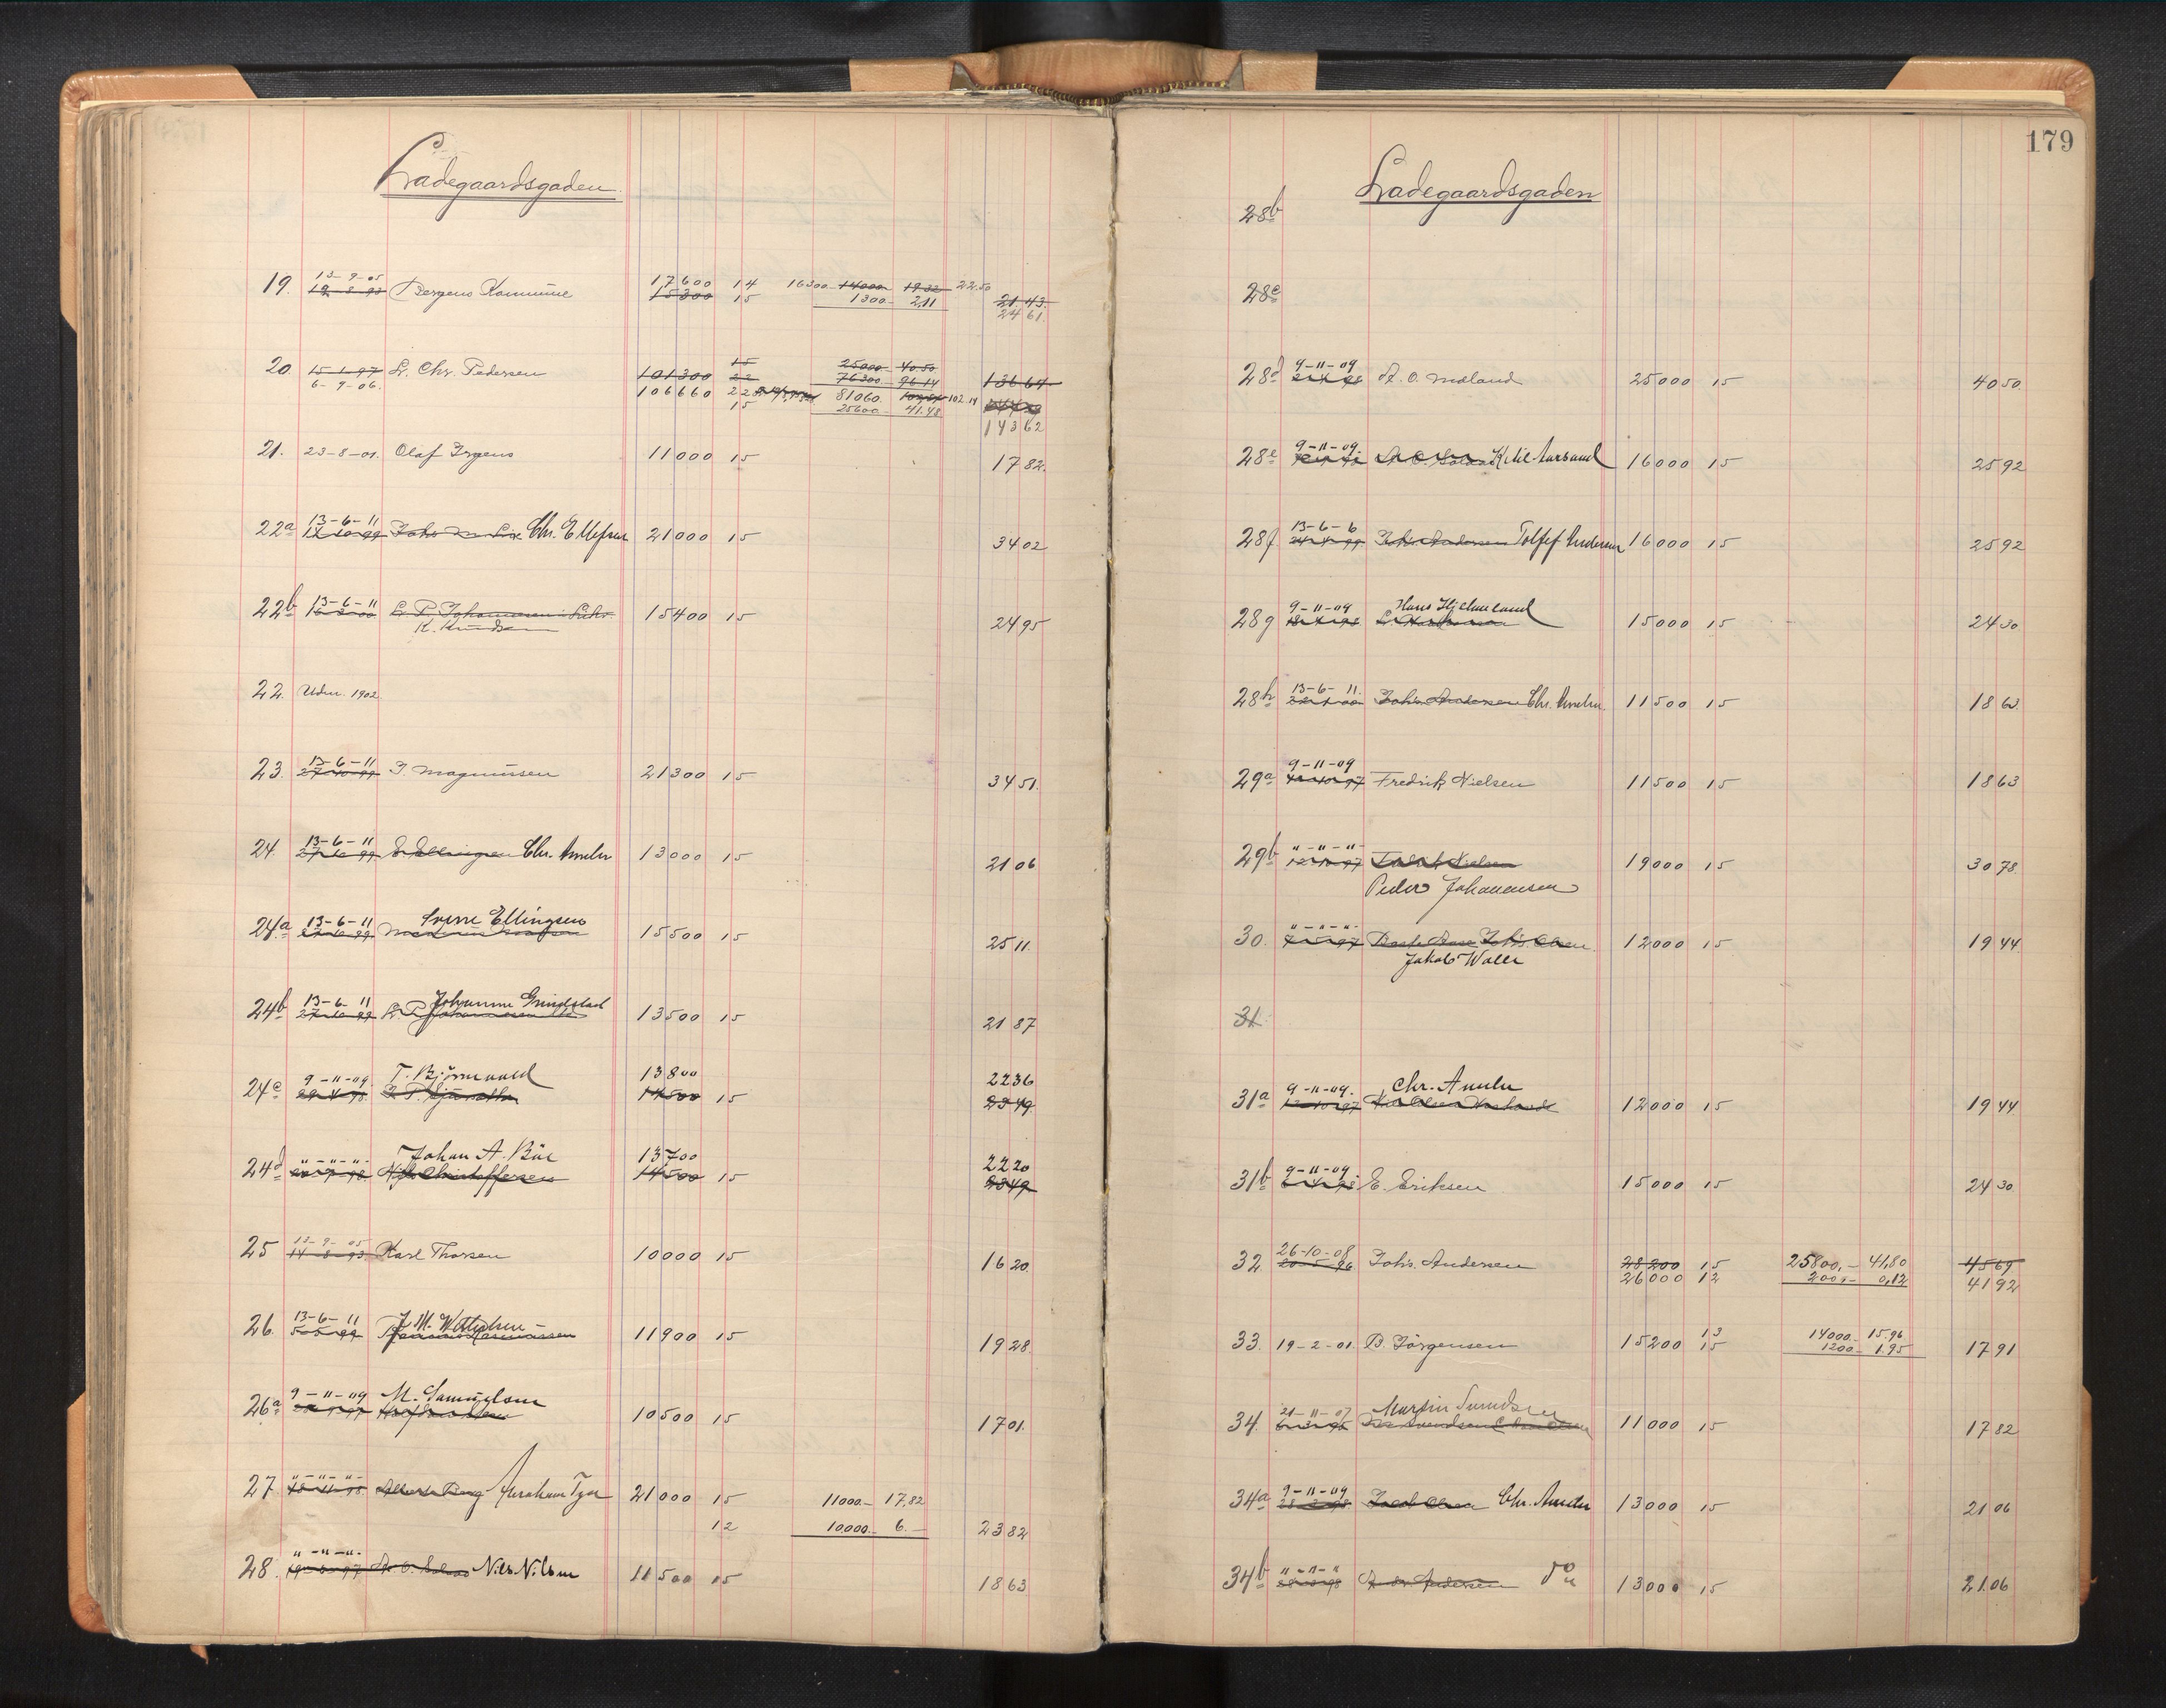 179
Ladegaardsgaden
19. 13-9-05 Bergens Kommune 17600 14 16300 14000 19.32 22.50
15300 15 1300 2,11 21.43
24 61
20. 15-1-97 L. Chr. Pedersen 101300 15 25000 40.50
6-9-06. 22 76300 96.14 136 64
106660 22 81060 102.14
15 25600 41.48
143 62
21. 23-8-01. Olaf Irgens 11000 15 17 82
22a 13-6-11 Chr. Ellefsen 21000 15 34 02
22b 13-6-11 L. P. Johannesen 15400 15 24 95
K. Knudsen
22. Udm. 1902
23. 13-6-11 J. Magnussen 21300 15 34 51.
27-10-99
24. 13-6-11 E. Ellingsen Chr. Ameln 13000 15 21 06
24a 13-6-11 Sverre Ellingsen 15500 15 25 11.
24b 13-6-11 Johanne Grindstad 13500 15 21 87
24c 9-11-09. T. Björnaaed 13800 22 36
14500 15 23 49
24d "-"-"- Johan A. Böe 13700 22 20
Christoffersen 14500 15 23 49
25 13-9-05 Karl Thorsen 10000 15 16 20
14-8-93
26. 13-6-11 Rasmussen 11900 15 19 28.
26a 9-11-09 M. Samuelsen 10500 15 17 01.
27. "-"-"- 21000 15 11000.- 17,82
12 10.000.- 6.- 23 82
28. "-"-"- Nils Nilsen 11500 15 18 63
Ladegaardsgaden
28b
28c
28d 9-11-09 A. O. Mæland 25000 15 40 50.
28e 9-11-09. Ketil Aarsand 16000 15 25 92
28f 13-6-6 Andersen Tollef Andersen 16000 15 25 92
28g 9-11-09 Hans Hjelmeland 15000 15 24 30
28h 13-6-11. Johs. Andersen Chr. Ameln 11500 15 18 63.
29a 9-11-09 Fredrik Nielsen 11500 15 18 63
29b "-"-"- Nielsen 19000 15 30 78
Peder Johannesen
30. "-"-"- Johs. Olsen 12000 15 19 44
Jakob Walle
31.
31a 9-11-09. Chr. Ameln 12000 15 19 44
31b 9-11-09. E. Eriksen 15000 15 24 30
32 26-10-08 Johs. Andersen 28200 15 25800,- 41,80 45 69
26000 12 200,- 0,12 41 92
33. 19-2-01. B. Jörgensen 15200 13 14000.- 15.96
15 1200.- 1.95 17 91
34. 21-11-07 Martin Svendsen 11000 15 17 82
34a 9-11-09 Jacob Olsen Chr. Ameln 13000 15 21 06
34b "-"-" Andersen do 13000 15 21.06